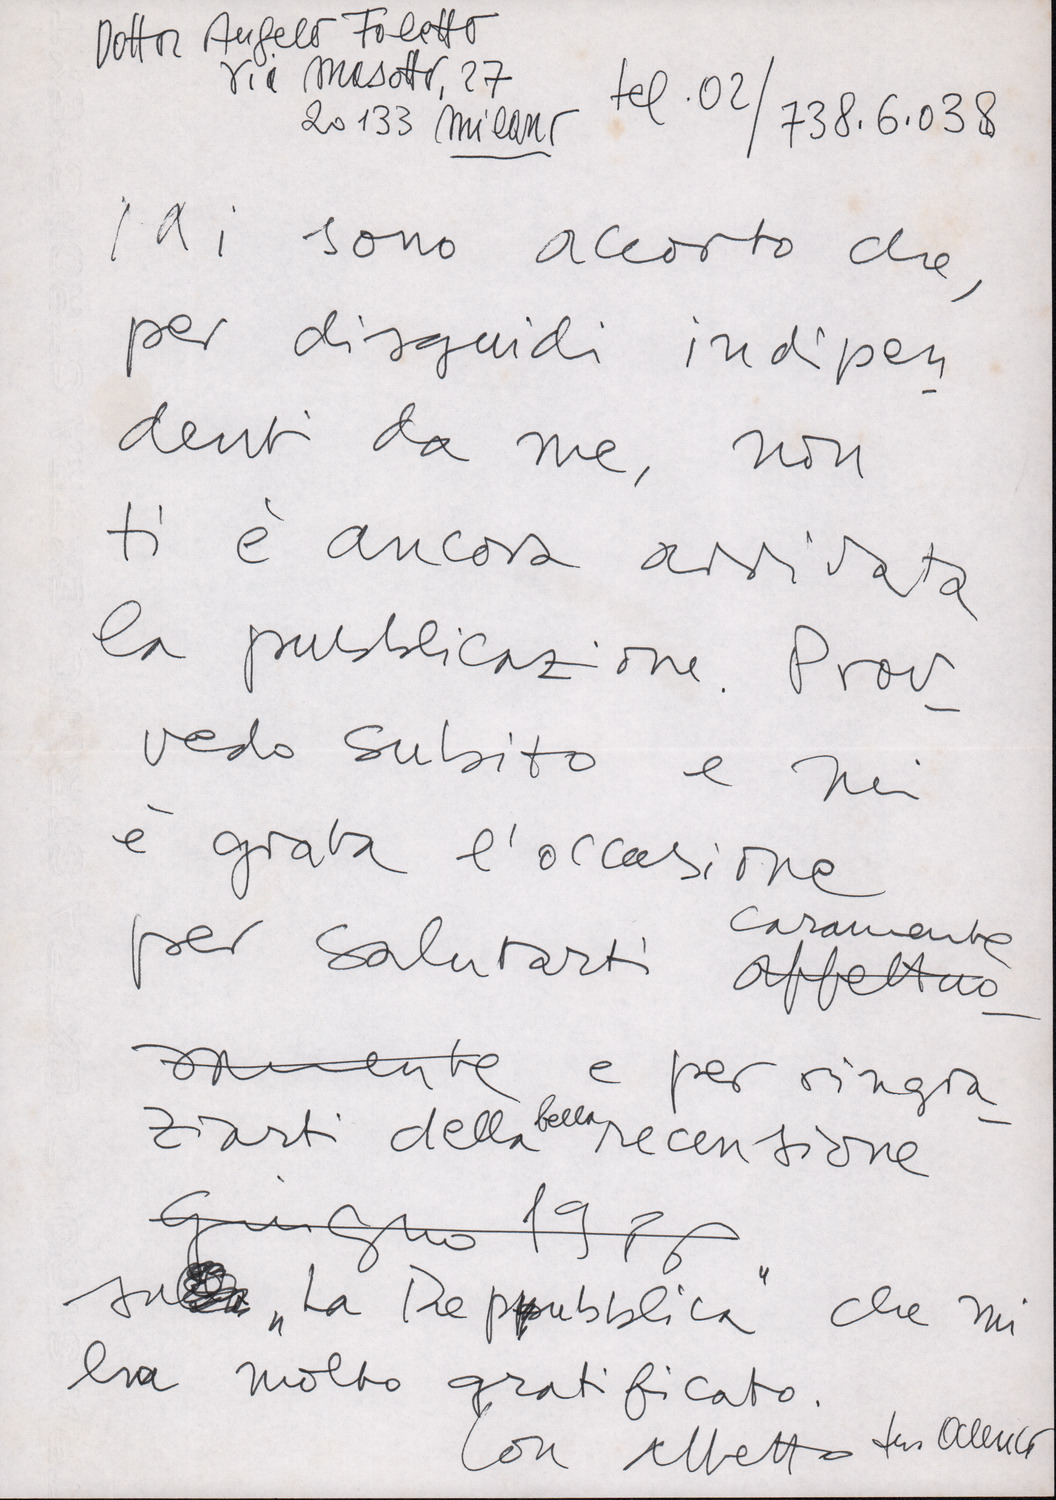 Dottor Angelo Foletto
via Masotto, 27
20133 Milano tel. 02/738.6.038
Mi sono accorto che,
per disguidi indipen-
denti da me, non
ti è ancora arrivata
la pubblicazione. Prov-
vedo subito e mi
è grata l'occasione
per salutarti caramente
affettuo-
samente e per ringra-
ziarti della bella recensione
Giugno 1986
su „La Repubblica" che mi
ha molto gratificato.
Con affetto tuo